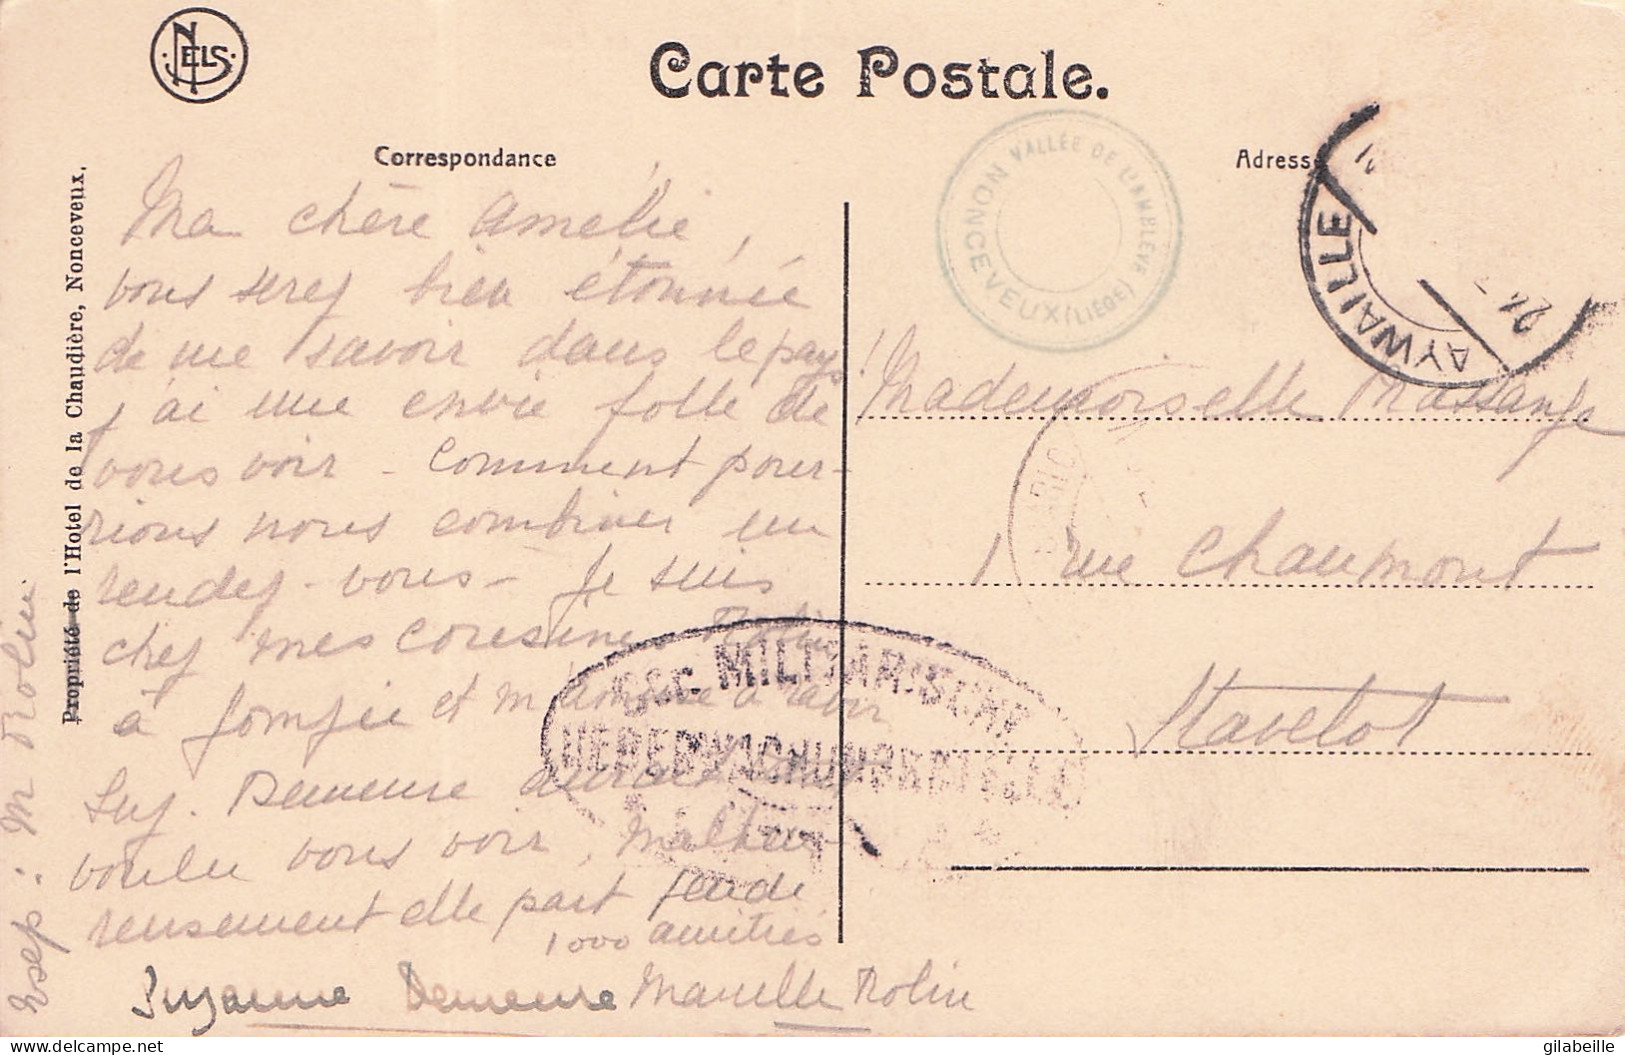 NELS
Carte Postale.
Correspondance
Adresse
NONCEVEUX (LIÉGE) VALLÉE DE L'AMBLÈVE
AYWAILLE
21
Propriété de l'Hotel de la Chaudière, Nonceveux.
Ma chère Amélie,
vous serez bien étonnée
de me savoir dans le pays!
j'ai une envie folle de
vous voir - Comment pour-
rions nous combiner un
rendez-vous - Je suis
chez mes cousines Rolin
à Jomzée et m'amuse à ravir
Suz. Demeure aurait
voulu vous voir, malheu-
reusement elle part
1000 amitiés
Suzanne Demeure Marcelle Rolin
exp: M Rolin
Mademoiselle Massange
1 rue Chaumont
Stavelot
MILITÄRISCHE
UEBERWACHUNGSSTELLE
gilabeille